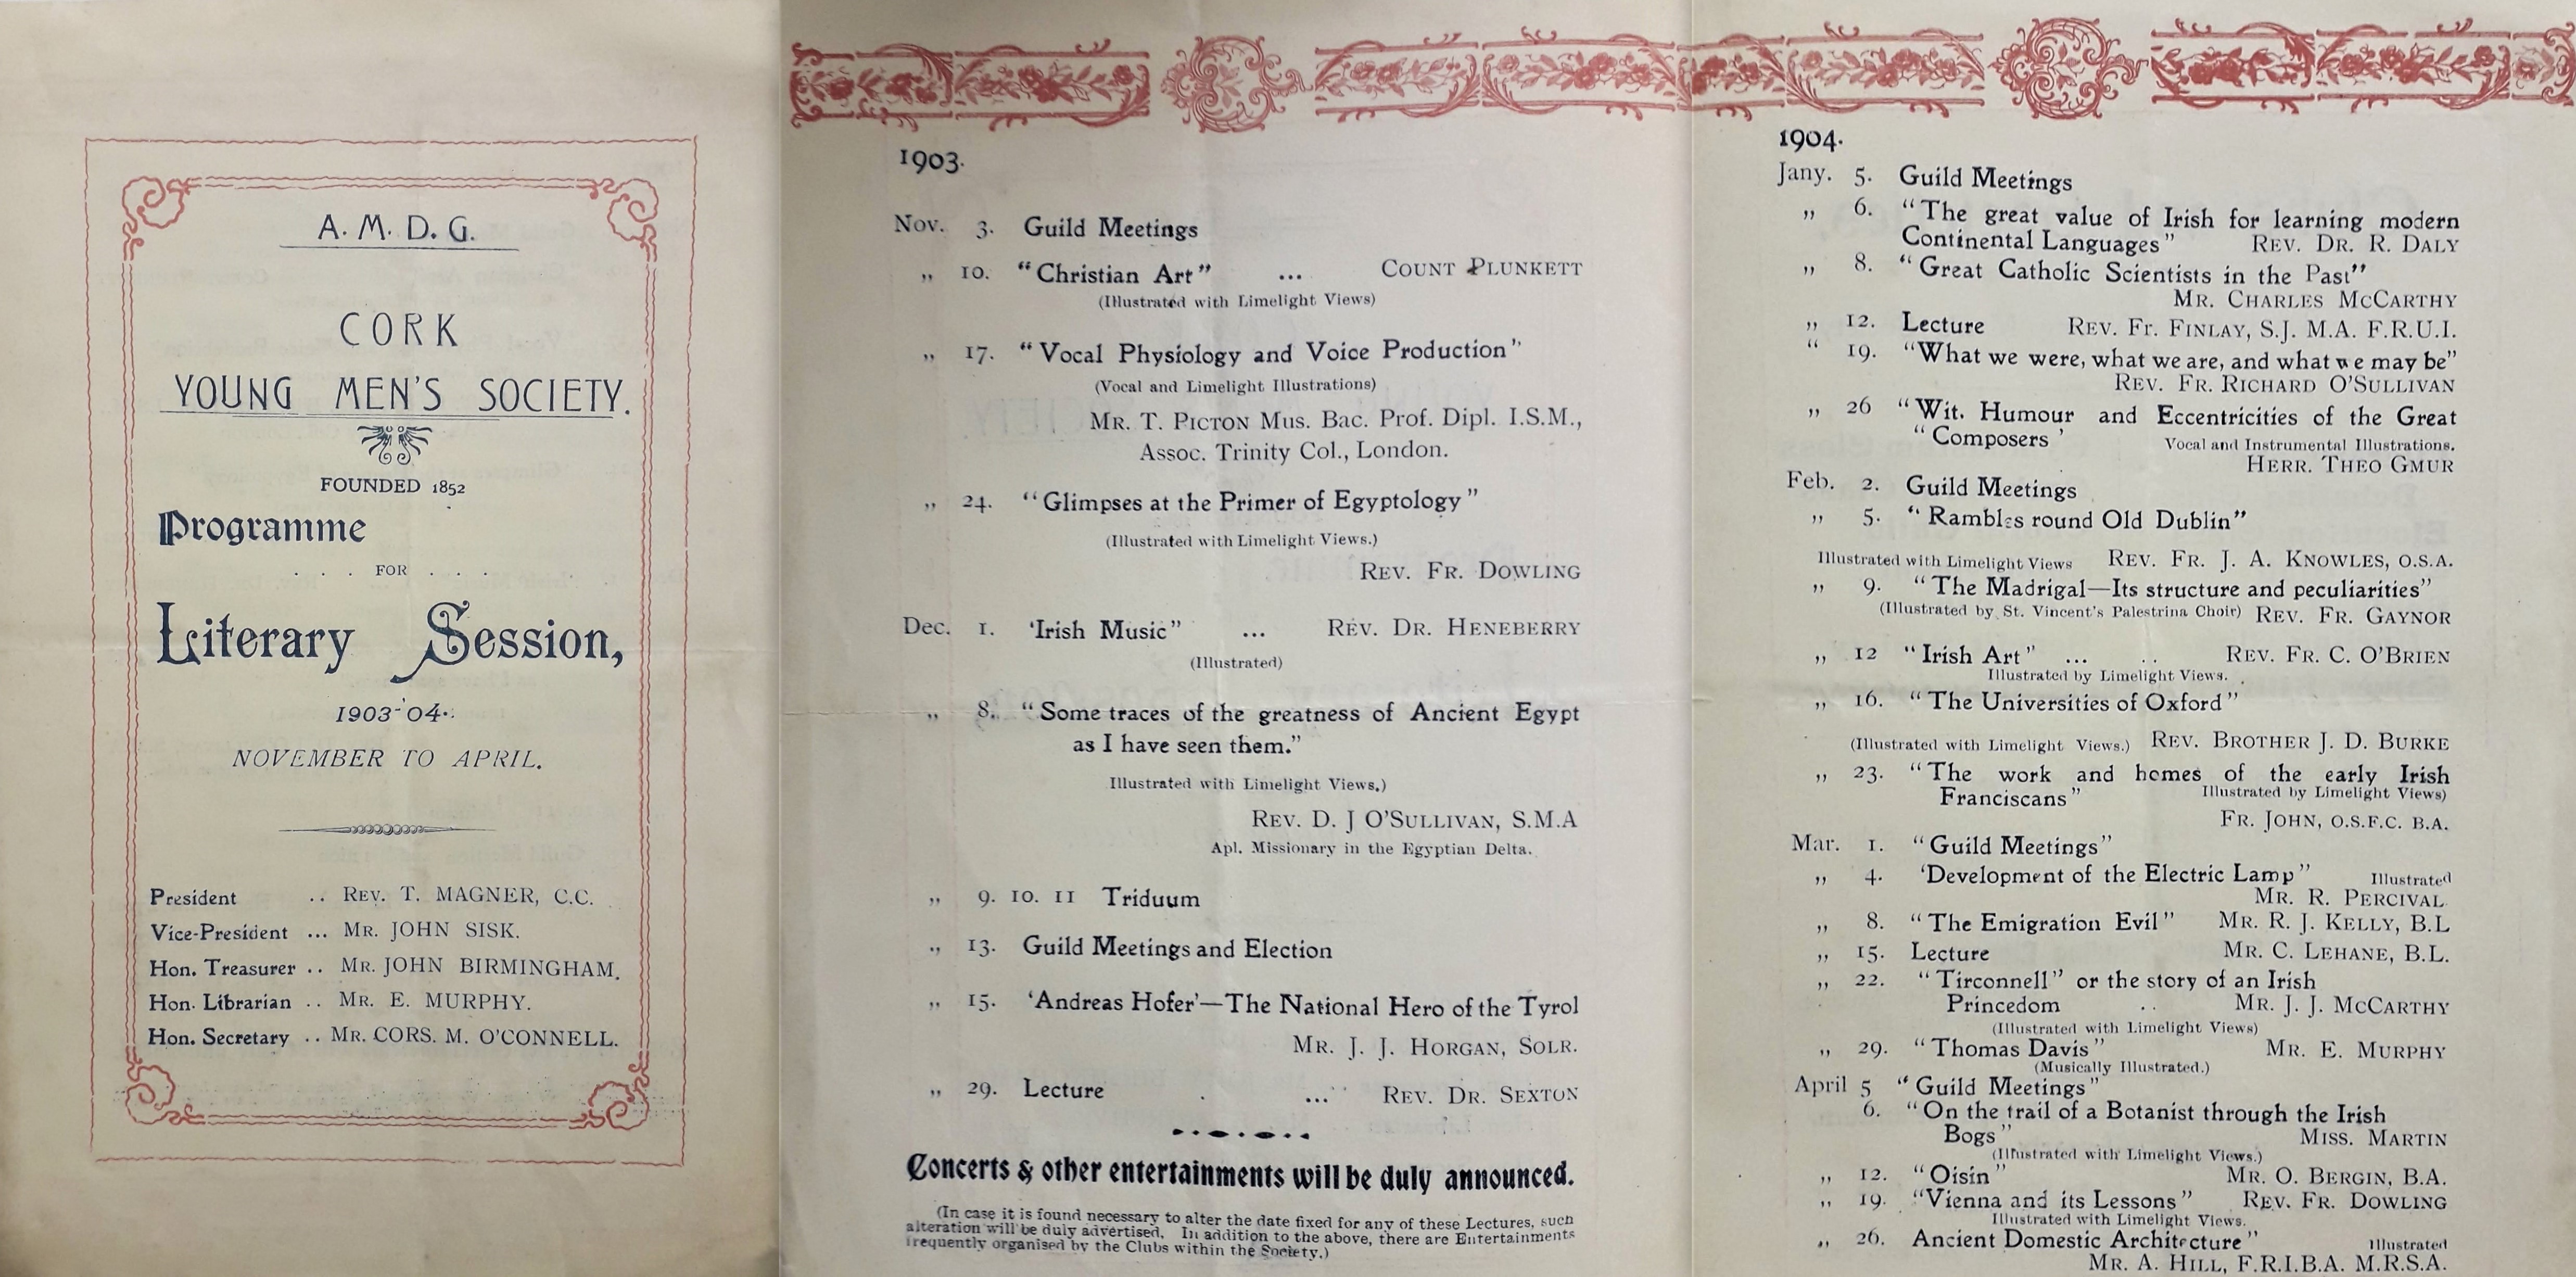 A. M. D. G.
CORK
YOUNG MEN'S SOCIETY.
FOUNDED 1852
Programme
. . . FOR . . .
Literary Session,
1903-'04.
NOVEMBER TO APRIL.
President .. REV. T. MAGNER, C.C.
Vice-President ... MR. JOHN SISK.
Hon. Treasurer .. MR. JOHN BIRMINGHAM.
Hon. Librarian .. MR. E. MURPHY.
Hon. Secretary .. MR. CORS. M. O'CONNELL.
1903.
Nov. 3. Guild Meetings
„ 10. "Christian Art" ... COUNT PLUNKETT
(Illustrated with Limelight Views)
„ 17. "Vocal Physiology and Voice Production"
(Vocal and Limelight Illustrations)
MR. T. PICTON Mus. Bac. Prof. Dipl. I.S.M.,
Assoc. Trinity Col., London.
„ 24. "Glimpses at the Primer of Egyptology"
(Illustrated with Limelight Views.)
REV. FR. DOWLING
Dec. 1. 'Irish Music" ... REV. DR. HENEBERRY
(Illustrated)
„ 8. "Some traces of the greatness of Ancient Egypt
as I have seen them."
Illustrated with Limelight Views.)
REV. D. J O'SULLIVAN, S.M.A
Apl. Missionary in the Egyptian Delta.
„ 9. 10. 11 Triduum
„ 13. Guild Meetings and Election
„ 15. 'Andreas Hofer'—The National Hero of the Tyrol
MR. J. J. HORGAN, SOLR.
„ 29. Lecture . ... REV. DR. SEXTON
Concerts & other entertainments will be duly announced.
(In case it is found necessary to alter the date fixed for any of these Lectures, such
alteration will be duly advertised. In addition to the above, there are Entertainments
frequently organised by the Clubs within the Society.)
1904.
Jany. 5. Guild Meetings
„ 6. "The great value of Irish for learning modern
Continental Languages" REV. DR. R. DALY
„ 8. "Great Catholic Scientists in the Past"
MR. CHARLES MCCARTHY
„ 12. Lecture REV. Fr. FINLAY, S.J. M.A. F.R.U.I.
" 19. "What we were, what we are, and what we may be"
REV. FR. RICHARD O'SULLIVAN
„ 26 "Wit. Humour and Eccentricities of the Great
"Composers ' Vocal and Instrumental Illustrations.
HERR. THEO GMUR
Feb. 2. Guild Meetings
„ 5. "Rambles round Old Dublin"
Illustrated with Limelight Views REV. FR. J. A. KNOWLES, O.S.A.
„ 9. "The Madrigal—Its structure and peculiarities"
(Illustrated by St. Vincent's Palestrina Choir) REV. FR. GAYNOR
„ 12 "Irish Art" ... .. REV. FR. C. O'BRIEN
Illustrated by Limelight Views.
„ 16. "The Universities of Oxford"
(Illustrated with Limelight Views.) REV. BROTHER J. D. BURKE
„ 23. "The work and homes of the early Irish
Franciscans" Illustrated by Limelight Views)
FR. JOHN, O.S.F.C. B.A.
Mar. 1. "Guild Meetings"
„ 4. 'Development of the Electric Lamp" Illustrated
MR. R. PERCIVAL
„ 8. "The Emigration Evil" MR. R. J. KELLY, B.L
„ 15. Lecture MR. C. LEHANE, B.L.
„ 22. "Tirconnell" or the story of an Irish
Princedom .. MR. J. J. MCCARTHY
(Illustrated with Limelight Views)
„ 29. "Thomas Davis" MR. E. MURPHY
(Musically Illustrated.)
April 5 "Guild Meetings"
6. "On the trail of a Botanist through the Irish
Bogs" MISS. MARTIN
(Illustrated with Limelight Views.)
„ 12. "Oisin" MR. O. BERGIN, B.A.
„ 19. "Vienna and its Lessons" REV. FR. DOWLING
Illustrated with Limelight Views.
„ 26. Ancient Domestic Architecture" Illustrated
MR. A. HILL, F.R.I.B.A. M.R.S.A.